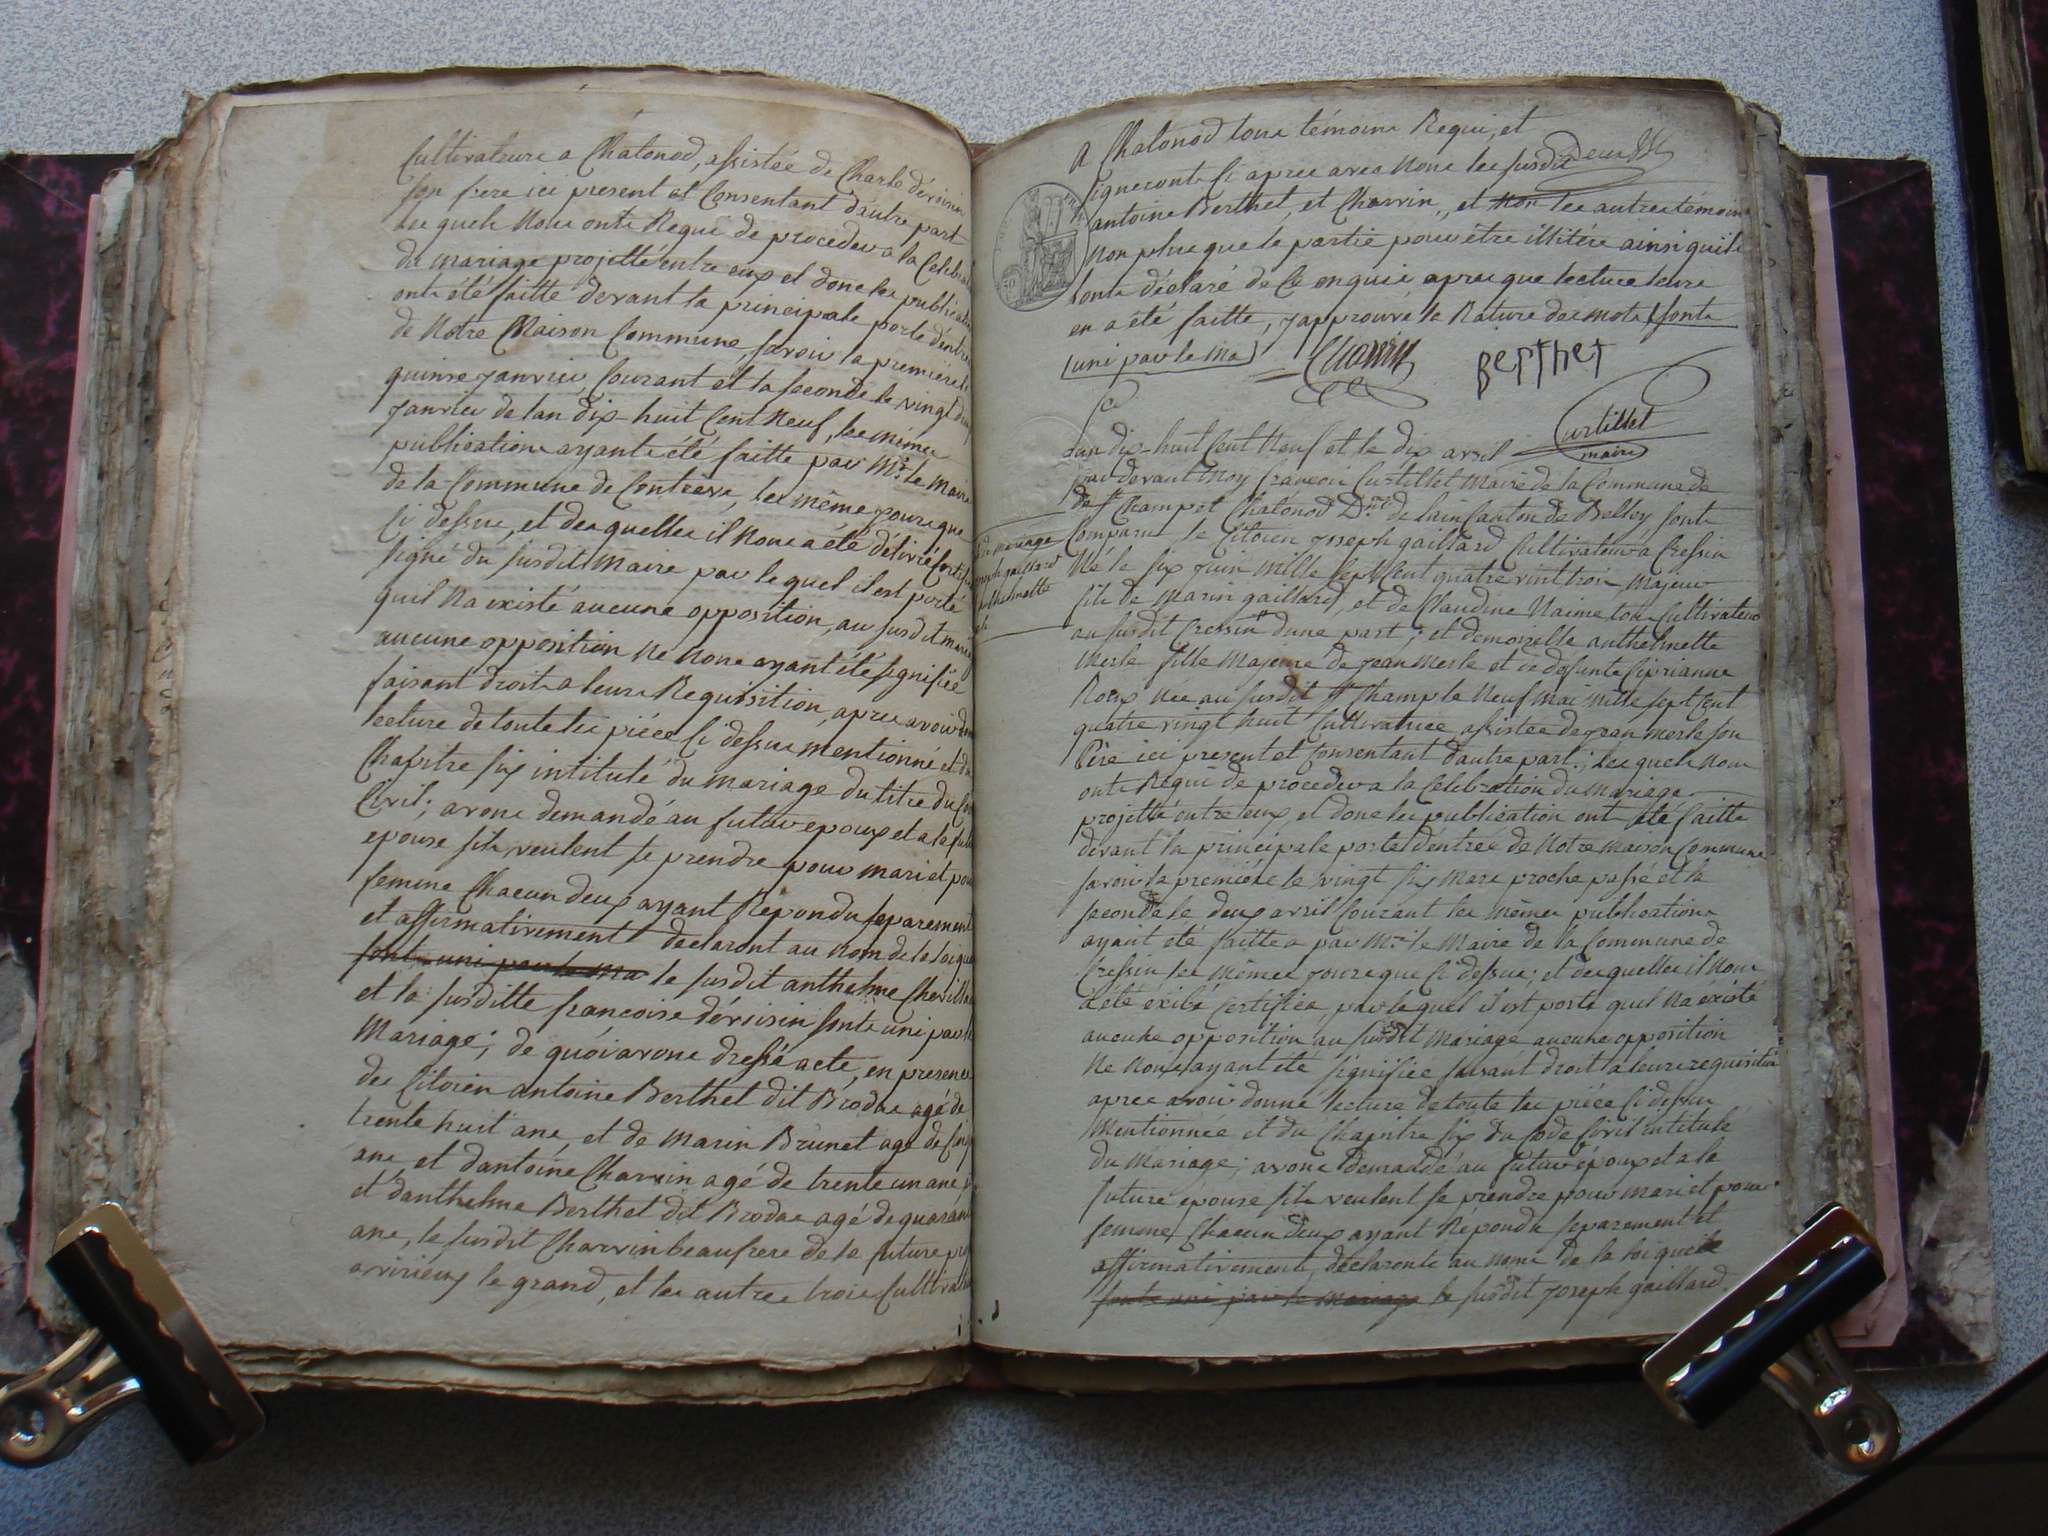 Cultivateurs a Chatonod, assistée de Charle dérvisin
son frere ici present et Consentant d'autre part
les quels Nous onts Requi de proceder a la Celebra
du mariage projetté entre eux et dont les publication
onts été faitte devant la principale porte d'entré
de Notre Maison Commune, savoir la premiere le
quinze janvier Courant et la seconde le vingt deux
janvier de lan dix-huit Cent Neuf, les mêmes
publications ayants été faitte par Mr. le maire
de la Commune de Contrevs, les même jours que
Ci dessus, et des quelles il Nous a été délivré Certifi
signé du susdit Maire par le quel il est porté
quil Na existé aucune opposition, au susdit maria
aucune opposition Ne Nous ayant été signifiée
faisant droit a leurs Requisition, apres avoir donné
lecture de toute les piéces Ci dessus mentionné et du
Chapitre six intitulé du mariage du titre du Code
Civil; avons demandé au futur epoux et a la futu
epouse sils veulent se prendre pour mari et pour
femme Chacun deux ayant Répondu separement
et affirmativement declaront au nom de la loi que
sonts uni par le ma le susdit anthelme Chevilla
et la susditte francoise dérvisin sonts uni par le
Mariage; de quoi avons dressé acte, en presence
des Citoien antoine Berthet dit Brodas agé de
trente huit ans, et de marin Brunet agé de Cinq
ans et dantoine Charvin agé de trente un ans,
et d'anthelme Berthet dit Brodas agé de quarant
ans, le susdit Charvin beaufrere de la future pro
a virieux le grand, et les autres trois Cultiva
A Chatonod tous témoins Requi, et
signeronts Ci apres avec Nous les susdit deux
antoine Berthet, et Charvin, et Non les autres témoins
Non plus que le partie pour être illitére ainsi quils
lonts déclaré de Ce enquis apres que lecture leurs
en a été faitte, japprouve la Rature des mots sonts
uni par le ma Charvin Berthet
Curtillet
maire
Lan dix-huit Cent Neuf et le dix avril
par devant Moy francois Curtillet Maire de la Commune de
de St Champ et Chatonod Dmt. de lain Canton de Belley sonts
Comparut le Citoien joseph gaillard Cultivateur a Cressin
Né le six juin Mille sept Cent quatre vint trois, majeur
fils de Marin gaillard, et de Claudine Naime tous Cultivateurs
au susdit Cressin d'une part; et demoiselle anthelmette
Merle fille Majeure de jean Merle et de defunte Ciprianne
Roux Née au susdit St Champ le Neuf Mai Mille sept Cent
quatre vingt huit Cultivatrice assistée de jean merle son
Pére ici present et Consentant dautre part; les quels Nous
onts Requi de proceder a la Celebration du Mariage
projetté entre eux et dont les publication ont été faitte
devant la principale porte dentrée de Notre maison Commune
savoir la premiére le vingt six Mars proche passé et la
seconde le deux avril Courant les mêmes publications
ayant été faittes par Mr. le Maire de la Commune de
Cressin les Mêmes jours que Ci dessus; et des quelles il Nous
a été éxibé Certifica par le quel il est porté quil Na éxisté
aucune opposition au susdit Mariage aucune opposition
Ne Nous ayant été signifiée faisant droit a leurs requisition
apres avoir donné lecture de toute les piéce Ci dessus
Mentionnée et du Chapitre six du Code Civil intitulé
du Mariage; avons demandé au futur époux et a la
future épouse sils veulent se prendre pour mari et pour
femme, Chacun deux ayant Répondu separement et
affirmativement, déclaronts au Nom de la loi quels
sonts uni par le mariage le susdit joseph gaillard
mariage
joseph gaillard
anthelmette